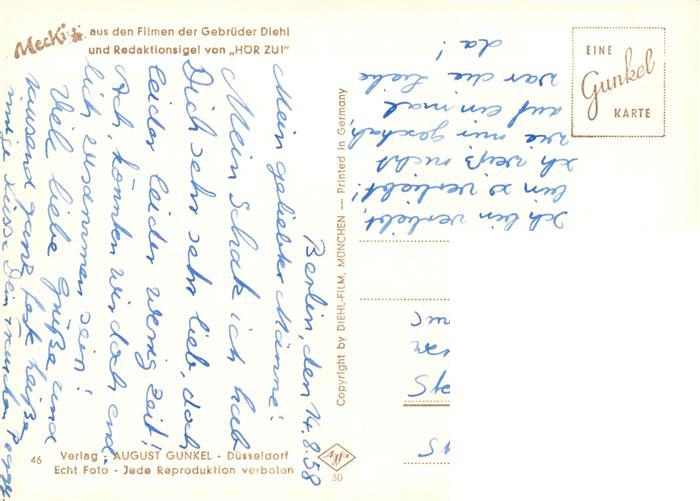 Mecki
aus den Filmen der Gebrüder Diehl
und Redaktionsigel von „HÖR ZU!"
EINE
Gunkel
KARTE
Copyright by DIEHL-FILM, MÜNCHEN — Printed in Germany
Berlin, den 14.8.58
Mein geliebter Männe!
Mein Schatz ich hab
Dich sehr sehr lieb, doch
leider leider wenig Zeit!
Ach, könnten wir doch end-
lich zusammen sein!
Viel liebe Grüße und
tausend ganz heiße
Küsse Dein
Ich bin verliebt,
bin so verliebt!
Ich weiß nicht
wie mir geschah,
auf einmal
war die Liebe
da!
46
Verlag - AUGUST GUNKEL - Düsseldorf
Echt Foto - Jede Reproduktion verboten
Agfa
30